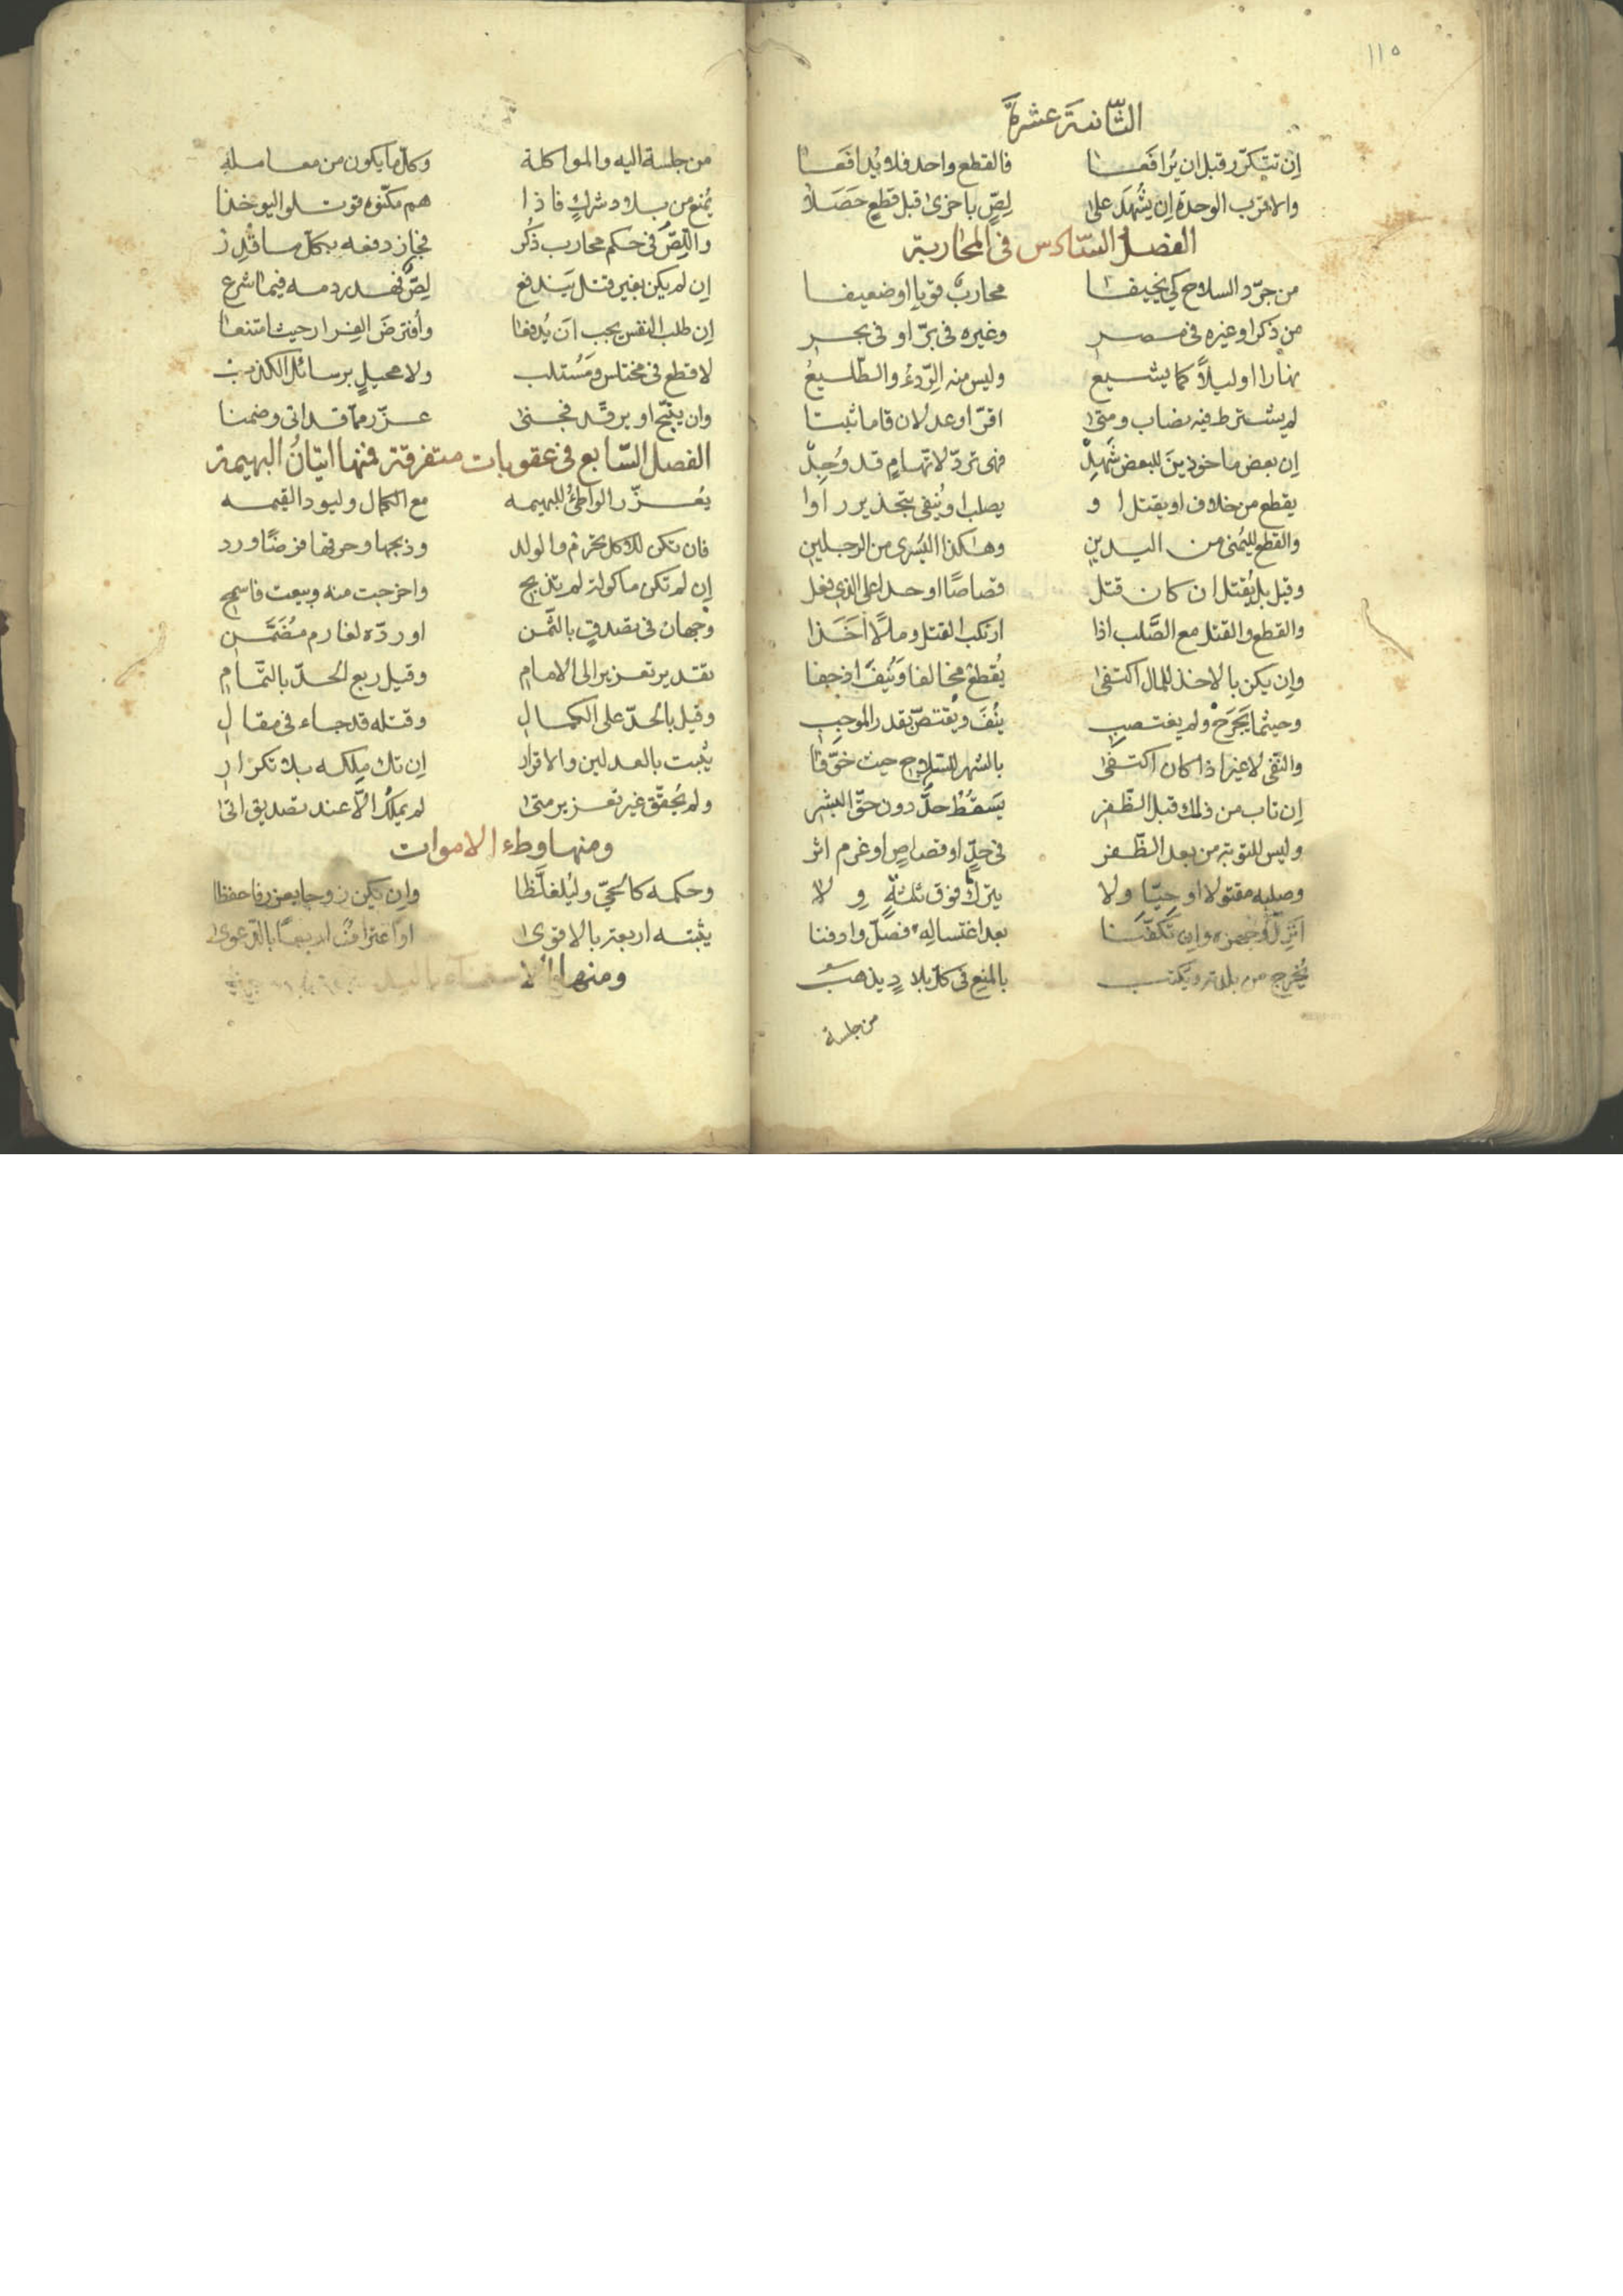 ١١٥
الثّانیة عشرة
اِن تتكرّر قبل ان يُرافَعا فالقطع واحد فلا يُدافَعا
والاقرب الوحدة اِن يشهَد على لِصٍّ باخرى قبل قطعٍ حَصَلا
الفصل السّادس فى المحاربة
من جرّد السلاح كى يخيفا محاربٌ قويا او ضعيفا
من ذكر او غيره فى مصر وغيره فى برّ او فى بحر
نهارا او ليلاً كما يشيع وليس منه الرّدءُ والطّليعُ
لم يشترط فيه نصاب ومتى اقرّ او عدلان قاما ثبتا
اِن بعض ماخوذينَ للبعض شَهِدْ فهى تردّ لاتهامٍ قد وُجِدْ
يقطع من خلاف او يقتل او يصلب او يُنفى بتحذير راوا
والقطع لليُمنى من اليدينِ وهكذا اليُسرى من الرجلينِ
وقيل بل يُقتل ان كان قتل قصاصًا او حدا على الذى فعل
والقطع والقتل مع الصَّلب اذا ارتكب القتل ومالًا اَخَذا
واِن يكن بالاخذ للمال اكتفى يُقطع مخالفا وَيُنفَ اذ جفا
وحيثما يَجرَحْ ولم يغتصبِ يُنفَ ويُقتصّ بقدر الموجبِ
والنّفى لا غير اذا كان اكتفى بالشهر للسّلاح حيث خوّفا
اِن تاب من ذلك قبل الظّفرِ يَسقُطْ حدٌّ دون حقّ البشرِ
وليس للتوبة من بعد الظّفر فى حدٍّ او قصاصٍ او غرم اثر
وصلبه مقتولا او حيّا ولا يترك فوق ثلثةٍ و لا
اُنزِل وجهزه وان تكفّنا بعد اغتساله فصلّ وادفنا
يُخرج من بلدته ويكتب بالمنع فى كل بلادٍ يذهب
من جلسة
من جلسة اليه والمواكلة وكلّ ما يكون من معاملة
يُمنع من بلاد شركٍ فاذا هم مكّنوه قوتلوا ليوخذا
واللِصّ فى حكم محارب ذُكر فجاز دفعه بكلّ ما قُدِر
اِن لم يكن بغير قتل يَندفع لِصٌّ فهدر دمه فيما شرع
اِن طلب النفس يجب اَن يُدفعا وأفترض الفِرار حيث امتنعا
لا قطع فى مختلس ومُستلب ولا محيلٍ برسائل الكذب
وان يبنّج او يرقّد فجنى عزّر مما قد اتى وضمنا
الفصل السّابع فى عقوبات متفرقة فمنها اتيانُ البهيمة
يُعزّر الواطئُ للبهيمه مع الكمال وليود القيمه
فان تكن للاكل تحرم والولد وذبحها وحرقها فرضًا ورد
اِن لم تكن ماكولة لم تذبح واخرجت منه وبيعت فاسمح
وجهان فى تصدقٍ بالثّمن او ردّه لغارم مُضَمَّن
تقدير تعزير الى الامامِ وقيل ربع الحدّ بالتّمامِ
وقيل بالحدّ على الكمالِ وقتله قد جاء فى مقالِ
يُثبت بالعدلين والاقرار اِن تك مِلكه بلا تكرار
ولم يُحقّق غير تعزير متى لم يملك الّا عند تصديق اتى
ومنها وطء الاموات
وحكمه كالحىّ وليُغلّظا واِن يكن زوجا يعزر فاحفظا
يثبته اربعة بالاقوى او اعترافٌ اربعًا بالدّعوى
ومنها الاستمناء باليد